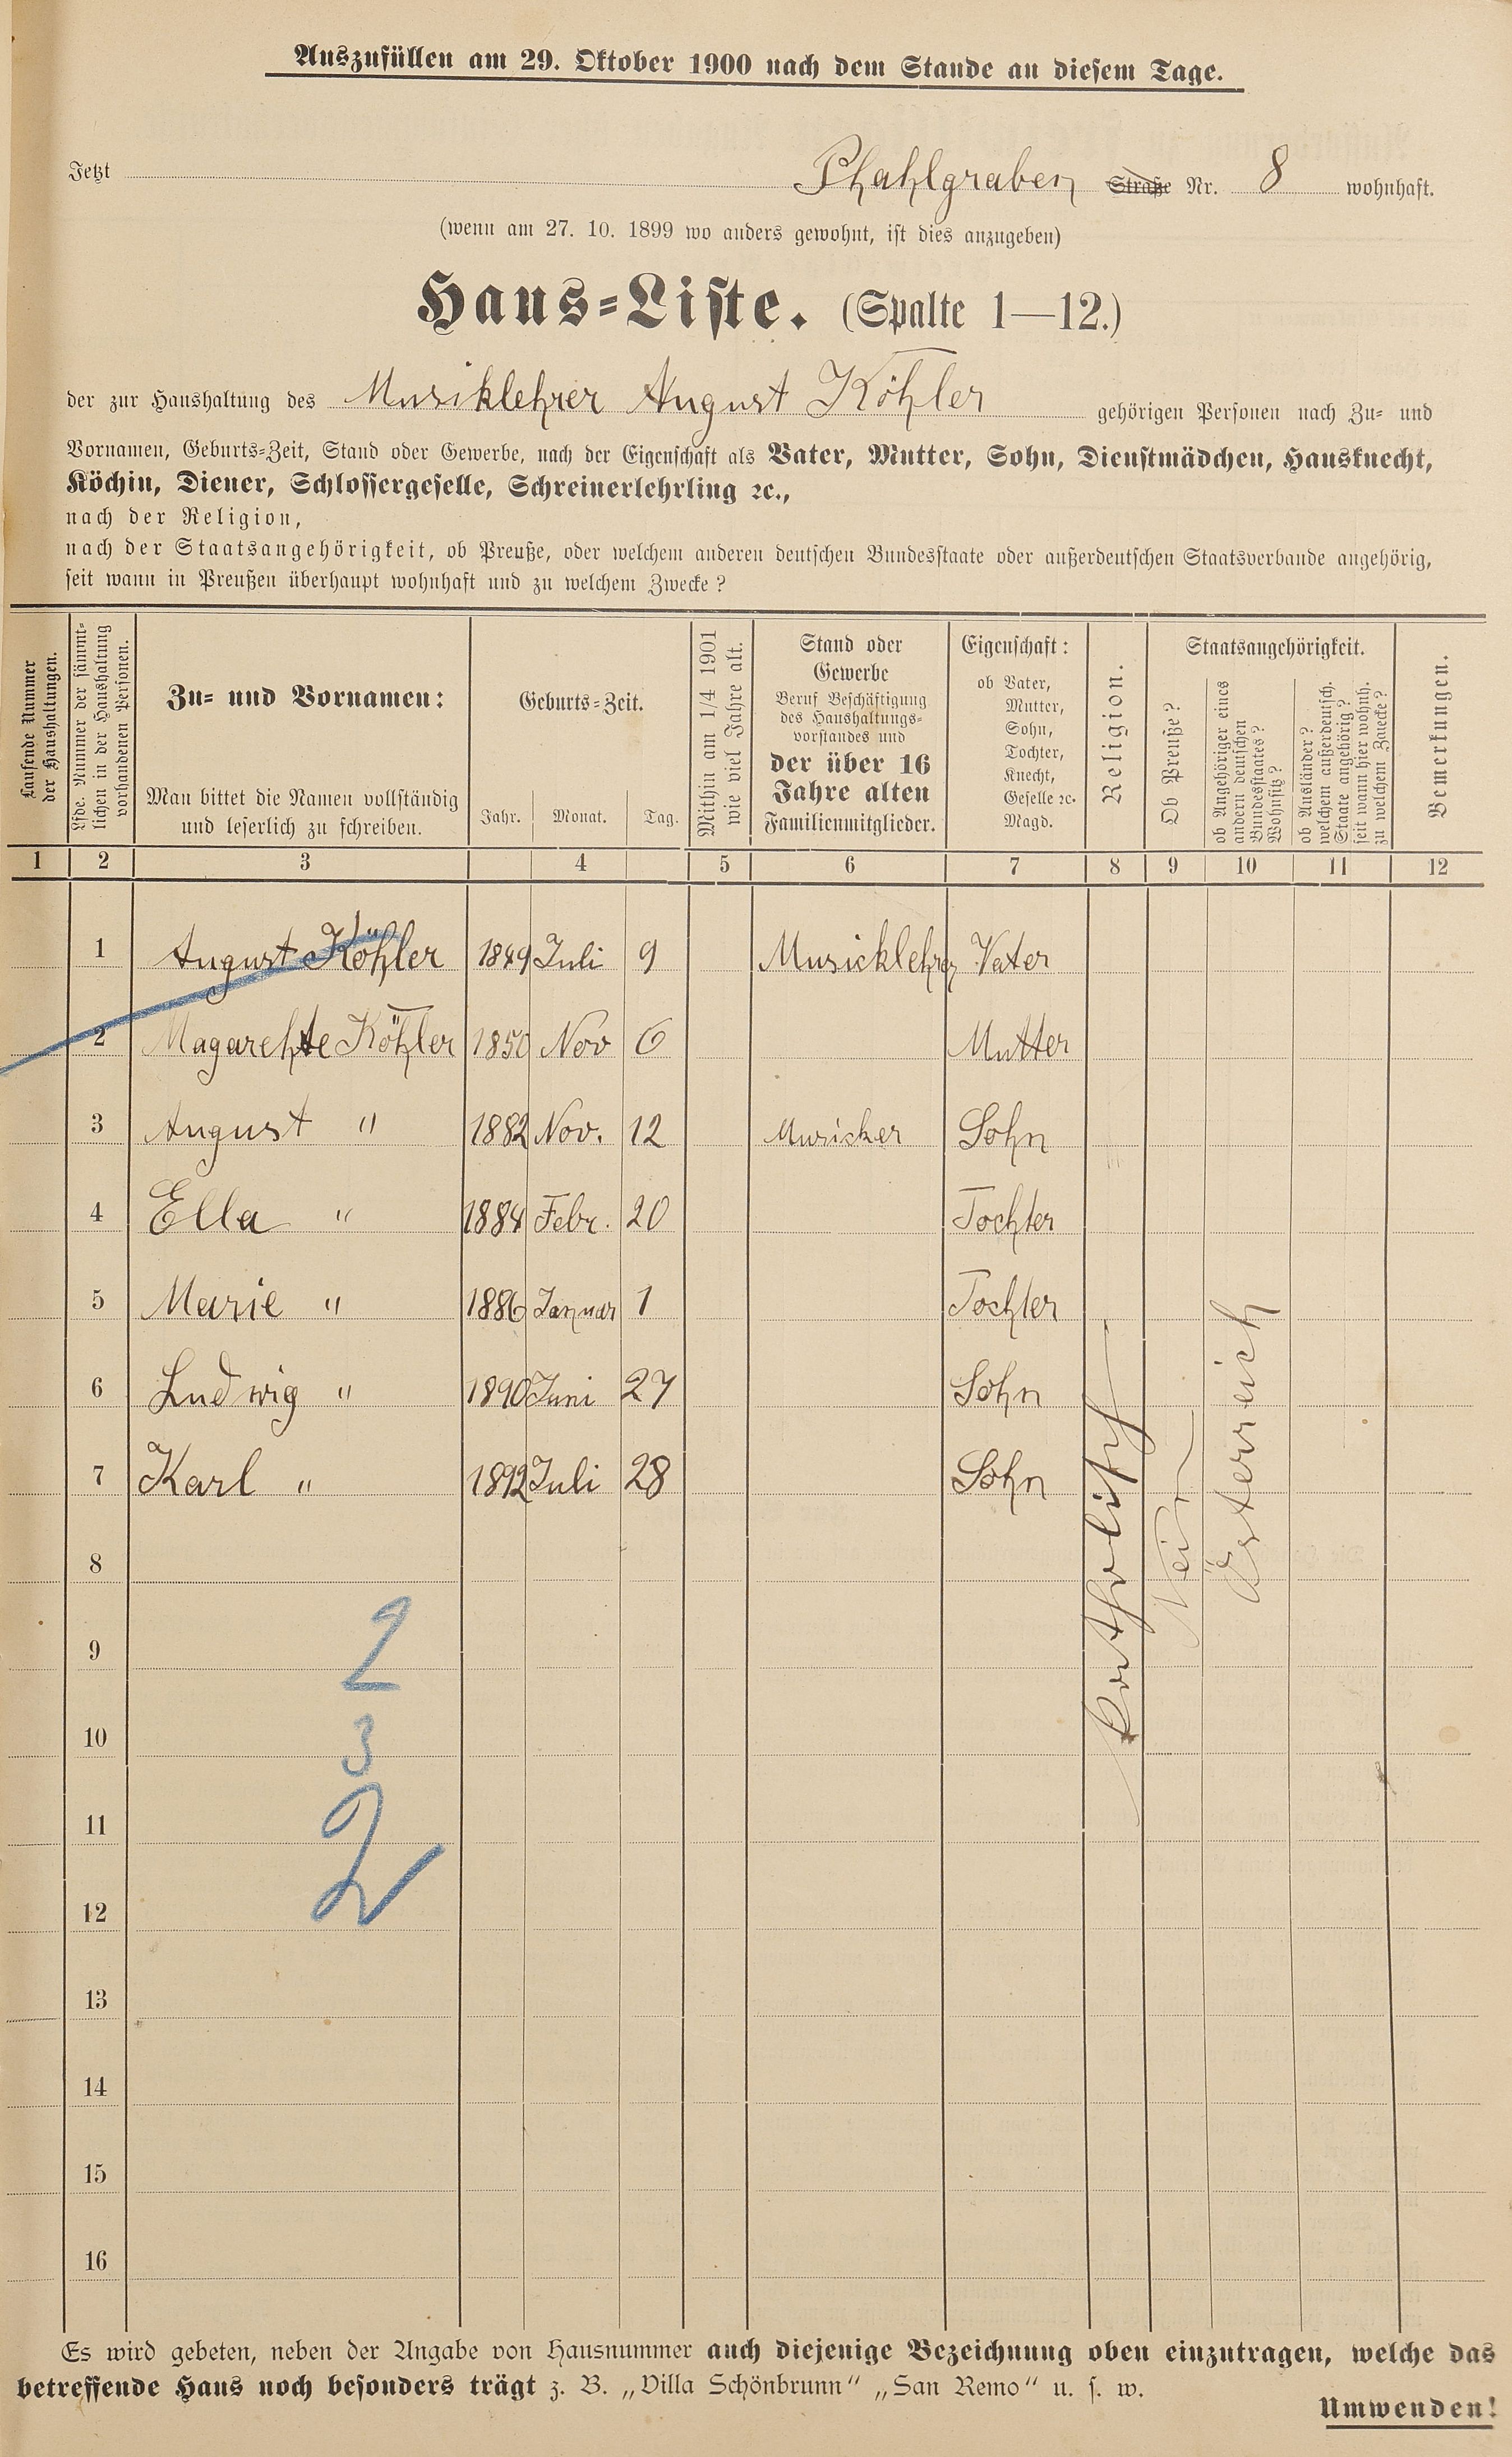 Auszufüllen am 29. Oktober 1900 nach dem Stande an diesem Tage.
Jetzt Phahlgraben Straße Nr. 8 wohnhaft.
(wenn am 27. 10. 1899 wo anders gewohnt, ist dies anzugeben)
Haus=Liste. (Spalte 1—12.)
der zur Haushaltung des Musiklehrer August Köhler gehörigen Personen nach Zu= und
Vornamen, Geburts=Zeit, Stand oder Gewerbe, nach der Eigenschaft als Vater, Mutter, Sohn, Dienstmädchen, Hausknecht,
Köchin, Diener, Schlossergeselle, Schreinerlehrling ꝛc.,
nach der Religion,
nach der Staatsangehörigkeit, ob Preuße, oder welchem anderen deutschen Bundesstaate oder außerdeutschen Staatsverbande angehörig,
seit wann in Preußen überhaupt wohnhaft und zu welchem Zwecke?
Laufende Nummer
der Haushaltungen.
Lfde. Nummer der sämmt=
lichen in der Haushaltung
vorhandenen Personen.
Zu= und Vornamen:
Man bittet die Namen vollständig
und leserlich zu schreiben.
Geburts=Zeit.
Jahr. Monat. Tag.
Mithin am 1/4 1901
wie viel Jahre alt.
Stand oder
Gewerbe
Beruf Beschäftigung
des Haushaltungs=
vorstandes und
der über 16
Jahre alten
Familienmitglieder.
Eigenschaft:
ob Vater,
Mutter,
Sohn,
Tochter,
Knecht,
Geselle ꝛc.
Magd.
Religion.
Staatsangehörigkeit.
Ob Preuße?
ob Angehöriger eines
andern deutschen
Bundesstaates?
Wohnsitz?
ob Ausländer?
welchem außerdeutsch.
Staate angehörig?
seit wann hier wohnh.
zu welchem Zwecke?
Bemerkungen.
1 2 3 4 5 6 7 8 9 10 11 12
1 August Köhler 1849 Juli 9 Musicklehrer Vater
2 Magarehte Köhler 1850 Nov 6 Mutter
3 August " 1882 Nov. 12 Musicker Sohn
4 Ella " 1884 Febr. 20 Tochter
5 Marie " 1886 Januar 1 Tochter
6 Ludwig " 1890 Juni 27 Sohn
7 Karl " 1892 Juli 28 Sohn
katholisch
Nein
Österreich
8
9 2
10 3
11
12 2
13
14
15
16
Es wird gebeten, neben der Angabe von Hausnummer auch diejenige Bezeichnung oben einzutragen, welche das
betreffende Haus noch besonders trägt z. B. „Villa Schönbrunn“ „San Remo“ u. s. w.
Umwenden!